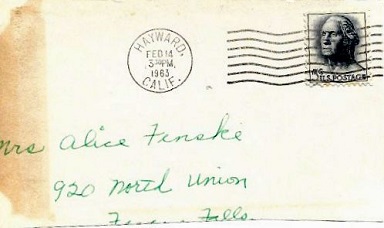 HAYWARD,
FEB 14
3 30 PM.
1963
CALIF.
U.S. POSTAGE
Mrs Alice Fenske
920 North Union
Falls